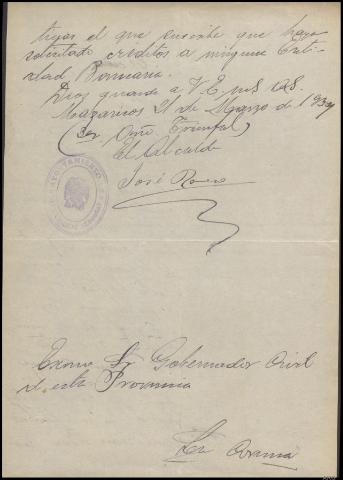 el que suscribe que haya
solicitado creditos a ninguna Enti-
dad Bancaria.
Dios guarde a V.E. ms. as.
Mazaricos 21 de Marzo de 1939
(3er Año Triunfal)
El Alcalde
José
AYUNTAMIENTO
Excmo Sr Gobernador Civil
de esta Provincia
La Coruña